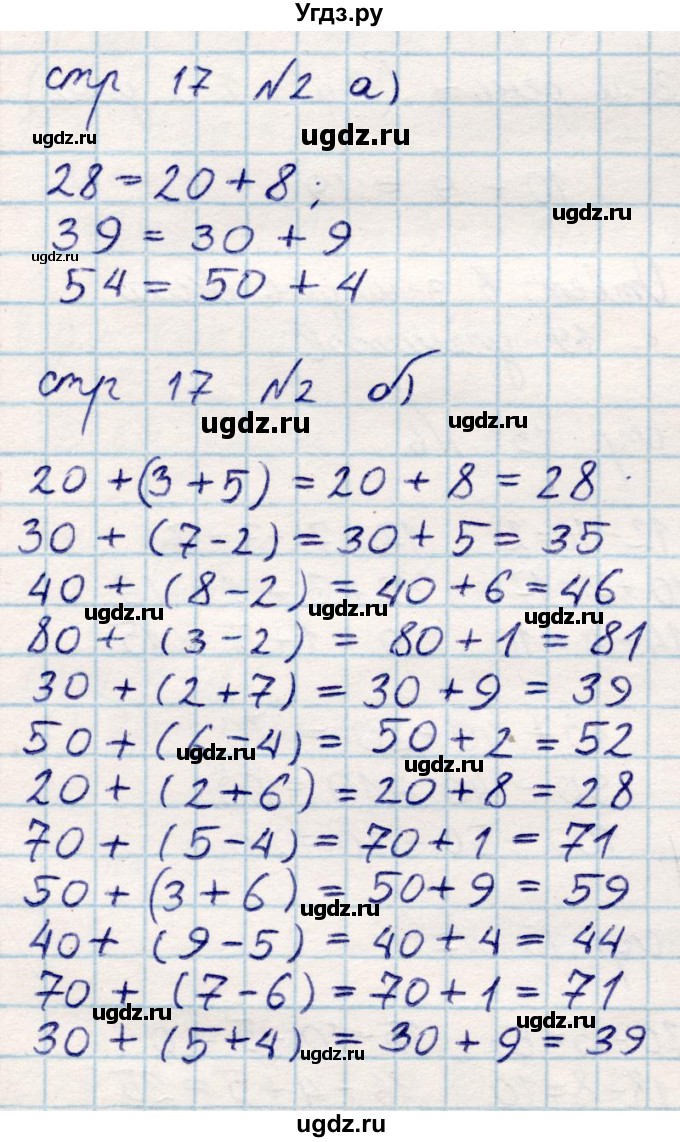 Угдз.ру
стр 17 №2 а)
ugdz.ru
ugdz.ru
28 = 20 + 8;
ugdz.ru
39 = 30 + 9
ugdz.ru
54 = 50 + 4
стр 17 №2 б)
ugdz.ru
ugdz.ru
20 + (3 + 5) = 20 + 8 = 28
30 + (7 - 2) = 30 + 5 = 35
40 + (8 - 2) = 40 + 6 = 46
ugdz.ru ugdz.ru ugdz.ru
80 + (3 - 2) = 80 + 1 = 81
30 + (2 + 7) = 30 + 9 = 39
50 + (6 - 4) = 50 + 2 = 52
ugdz.ru ugdz.ru
20 + (2 + 6) = 20 + 8 = 28
70 + (5 - 4) = 70 + 1 = 71
50 + (3 + 6) = 50 + 9 = 59
ugdz.ru
40 + (9 - 5) = 40 + 4 = 44
70 + (7 - 6) = 70 + 1 = 71
ugdz.ru ugdz.ru
30 + (5 + 4) = 30 + 9 = 39
ugdz.ru
ugdz.ru